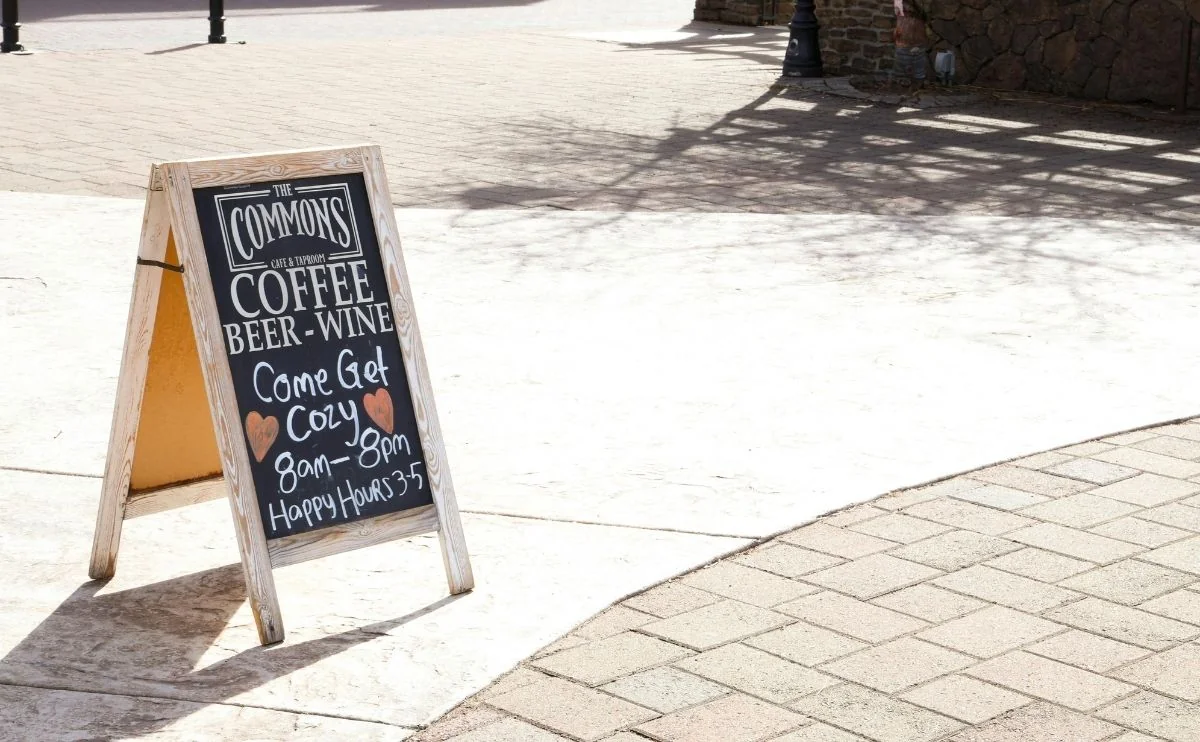 THE
COMMONS
CAFE & TAPROOM
COFFEE
BEER-WINE
Come Get
Cozy
8am-8pm
Happy Hours 3-5